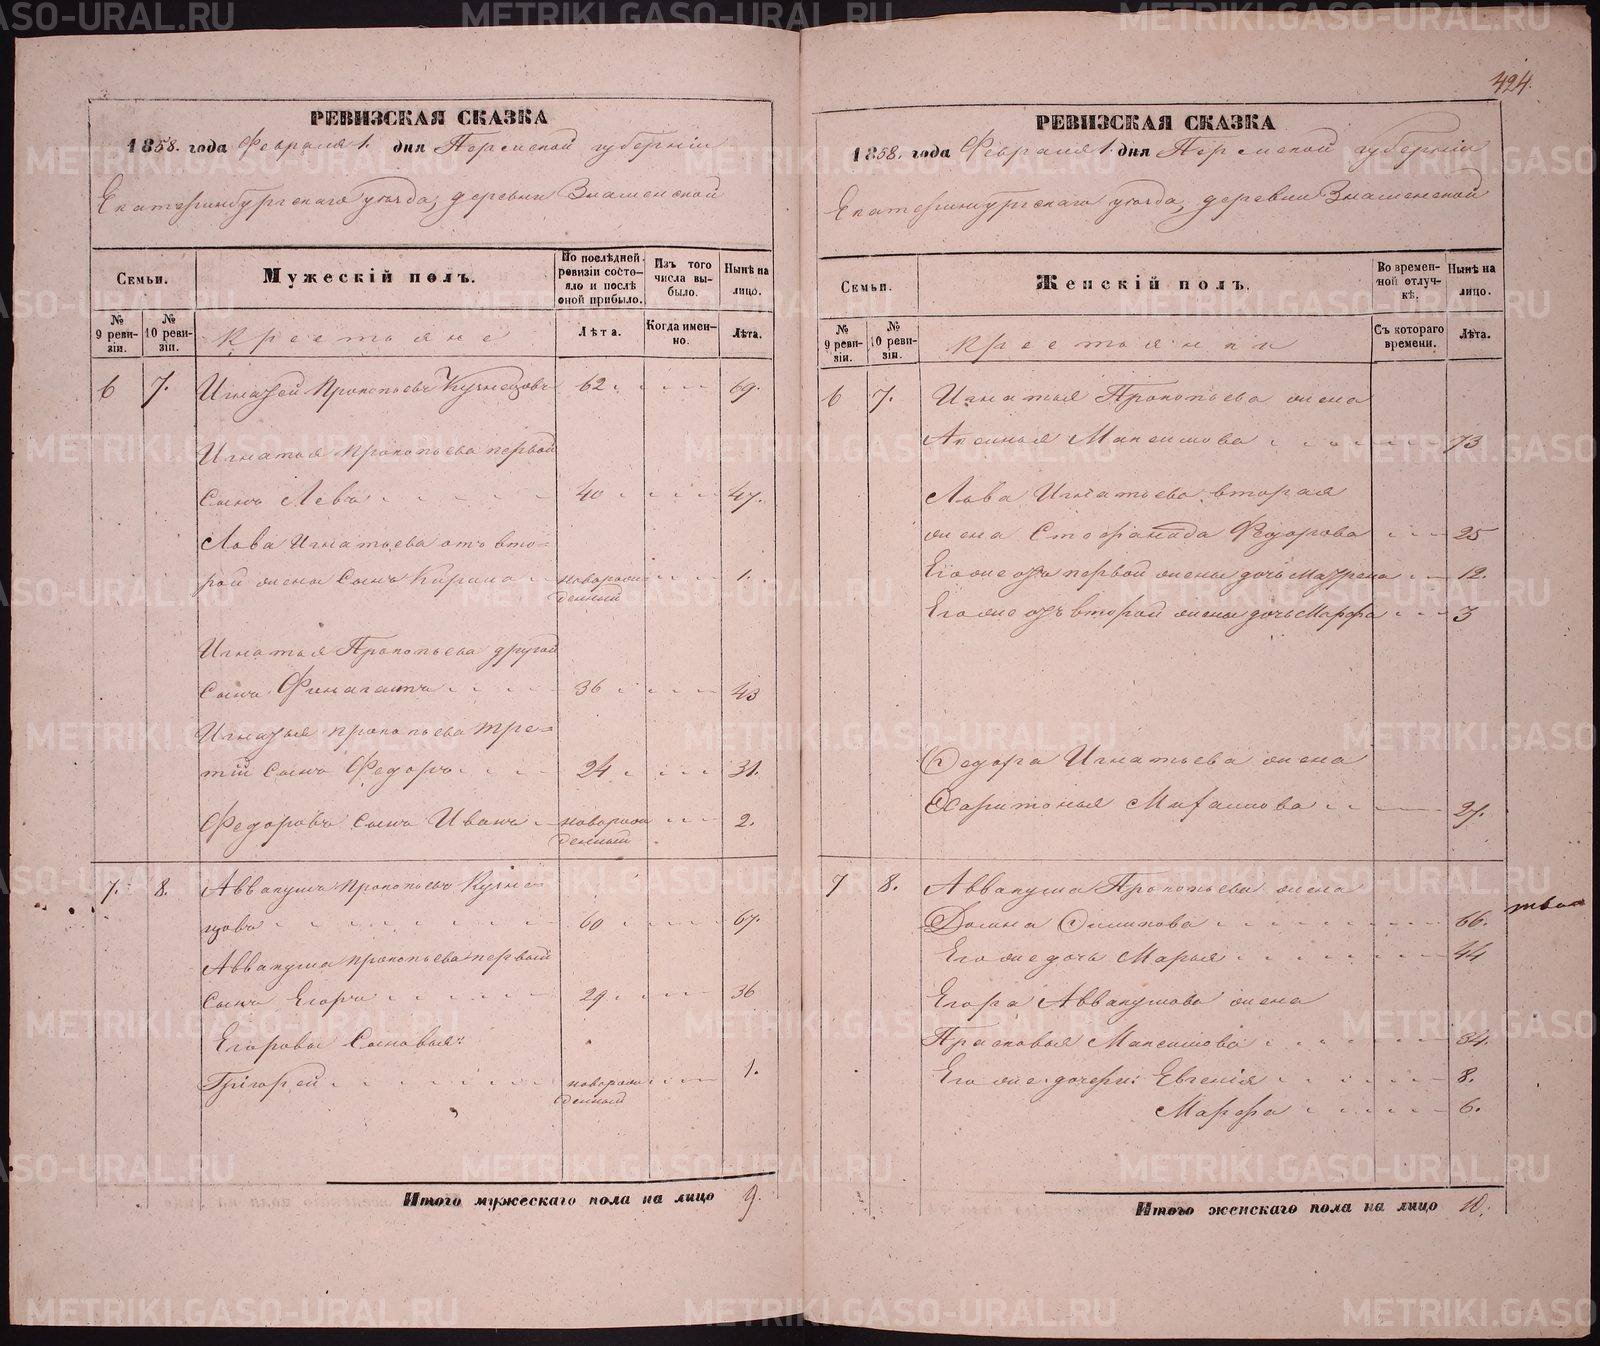 424.
РЕВИЗСКАЯ СКАЗКА
1858. года Февраля 1. дня Пермской губерніи
Екатеринбургскаго уѣзда, деревни Знаменской
Семьи.
Мужескій полъ.
По послѣдней ревизіи состояло и послѣ оной прибыло.
Изъ того числа выбыло.
Нынѣ на лицо.
№ 9 ревизіи.
№ 10 ревизіи.
Крестьяне
Лѣта.
Когда именно.
Лѣта.
6 7. Игнатей Прокопьевъ Кузнецовъ 62 69.
Игнатья Прокопьева первой
сынъ Левъ 40 47.
Льва Игнатьева отъ вто-
рой жены сынъ Кирила новорож 1.
денный
Игнатья Прокопьева другой
сынъ 36 43
Игнатья Прокопьева тре-
тій сынъ Федоръ 24 31.
Федоровъ сынъ Иванъ новорож 2.
денный
7. 8. Аввакумъ Прокопьевъ Кузне-
цовъ 60 67.
Аввакума Прокопьева первый
сынъ Егоръ 29 36
Егоровы сыновья:
Григорей новорож 1.
денный
Итого мужескаго пола на лицо 9.
РЕВИЗСКАЯ СКАЗКА
1858. года Февраля 1. дня Пермской губерніи
Екатеринбургскаго уѣзда, деревни Знаменской
Семьи.
Женскій полъ.
Во временной отлучкѣ.
Нынѣ на лицо.
№ 9 ревизіи.
№ 10 ревизіи.
Крестьянки
Съ котораго времени.
Лѣта.
6 7. Игнатья Прокопьева жена
Аксинья Максимова 73
Льва Игнатьева вторая
жена Стефанида Федорова 25
Его же отъ первой жены дочь Мавра 12.
Его же отъ второй жены дочь Марфа 3
Федора Игнатьева жена
Харитонья 27.
7 8. Аввакума Прокопьева жена
Домна 66.
Его же дочь Марья 44
Егора Аввакумова жена
Прасковья Максимова 34.
Его же дочери: Евгенія 8.
Марфа 6.
Итого женскаго пола на лицо 10.
METRIKI.GASO-URAL.RU